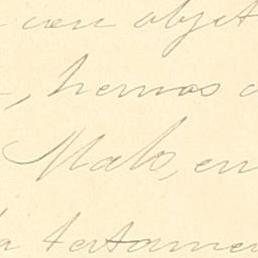 con objet
, hemos
Malo, en
la testamen